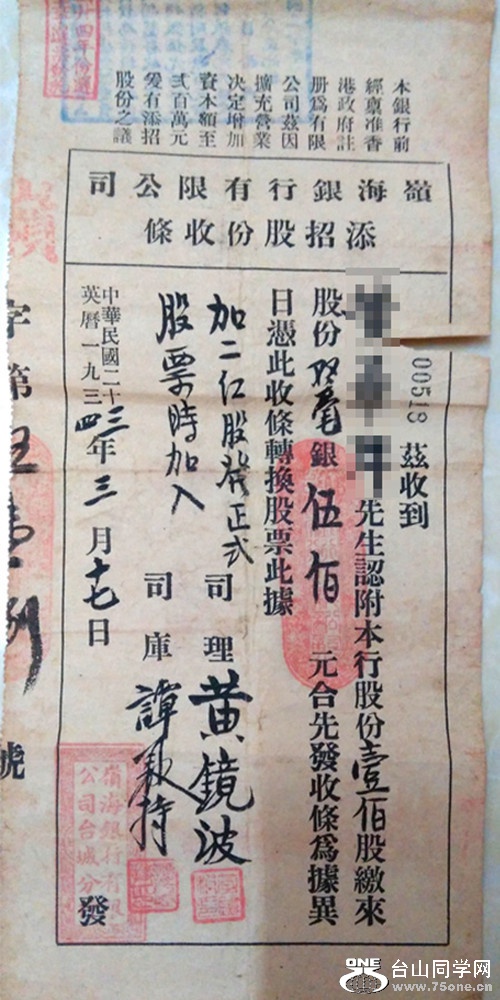 本銀行前
經稟准香
港政府註
册為有限
公司茲因
擴充營業
决定增加
資本額至
弍百萬元
爰有添招
股份之議
嶺海銀行有限公司
添招股份收條
00518
茲收到
先生認附本行股份壹佰股繳來
股份双毫銀伍佰元合先發收條為據異
日憑此收條轉換股票此據
加二仁股 正式
股票時加入
司理 黃鏡波
司庫 譚 持
中華民國二十三
英曆一九三四年三月十七日 發
嶺海銀行有限
公司台城分
字第 號
ONE 台山同学网
www.75one.cn